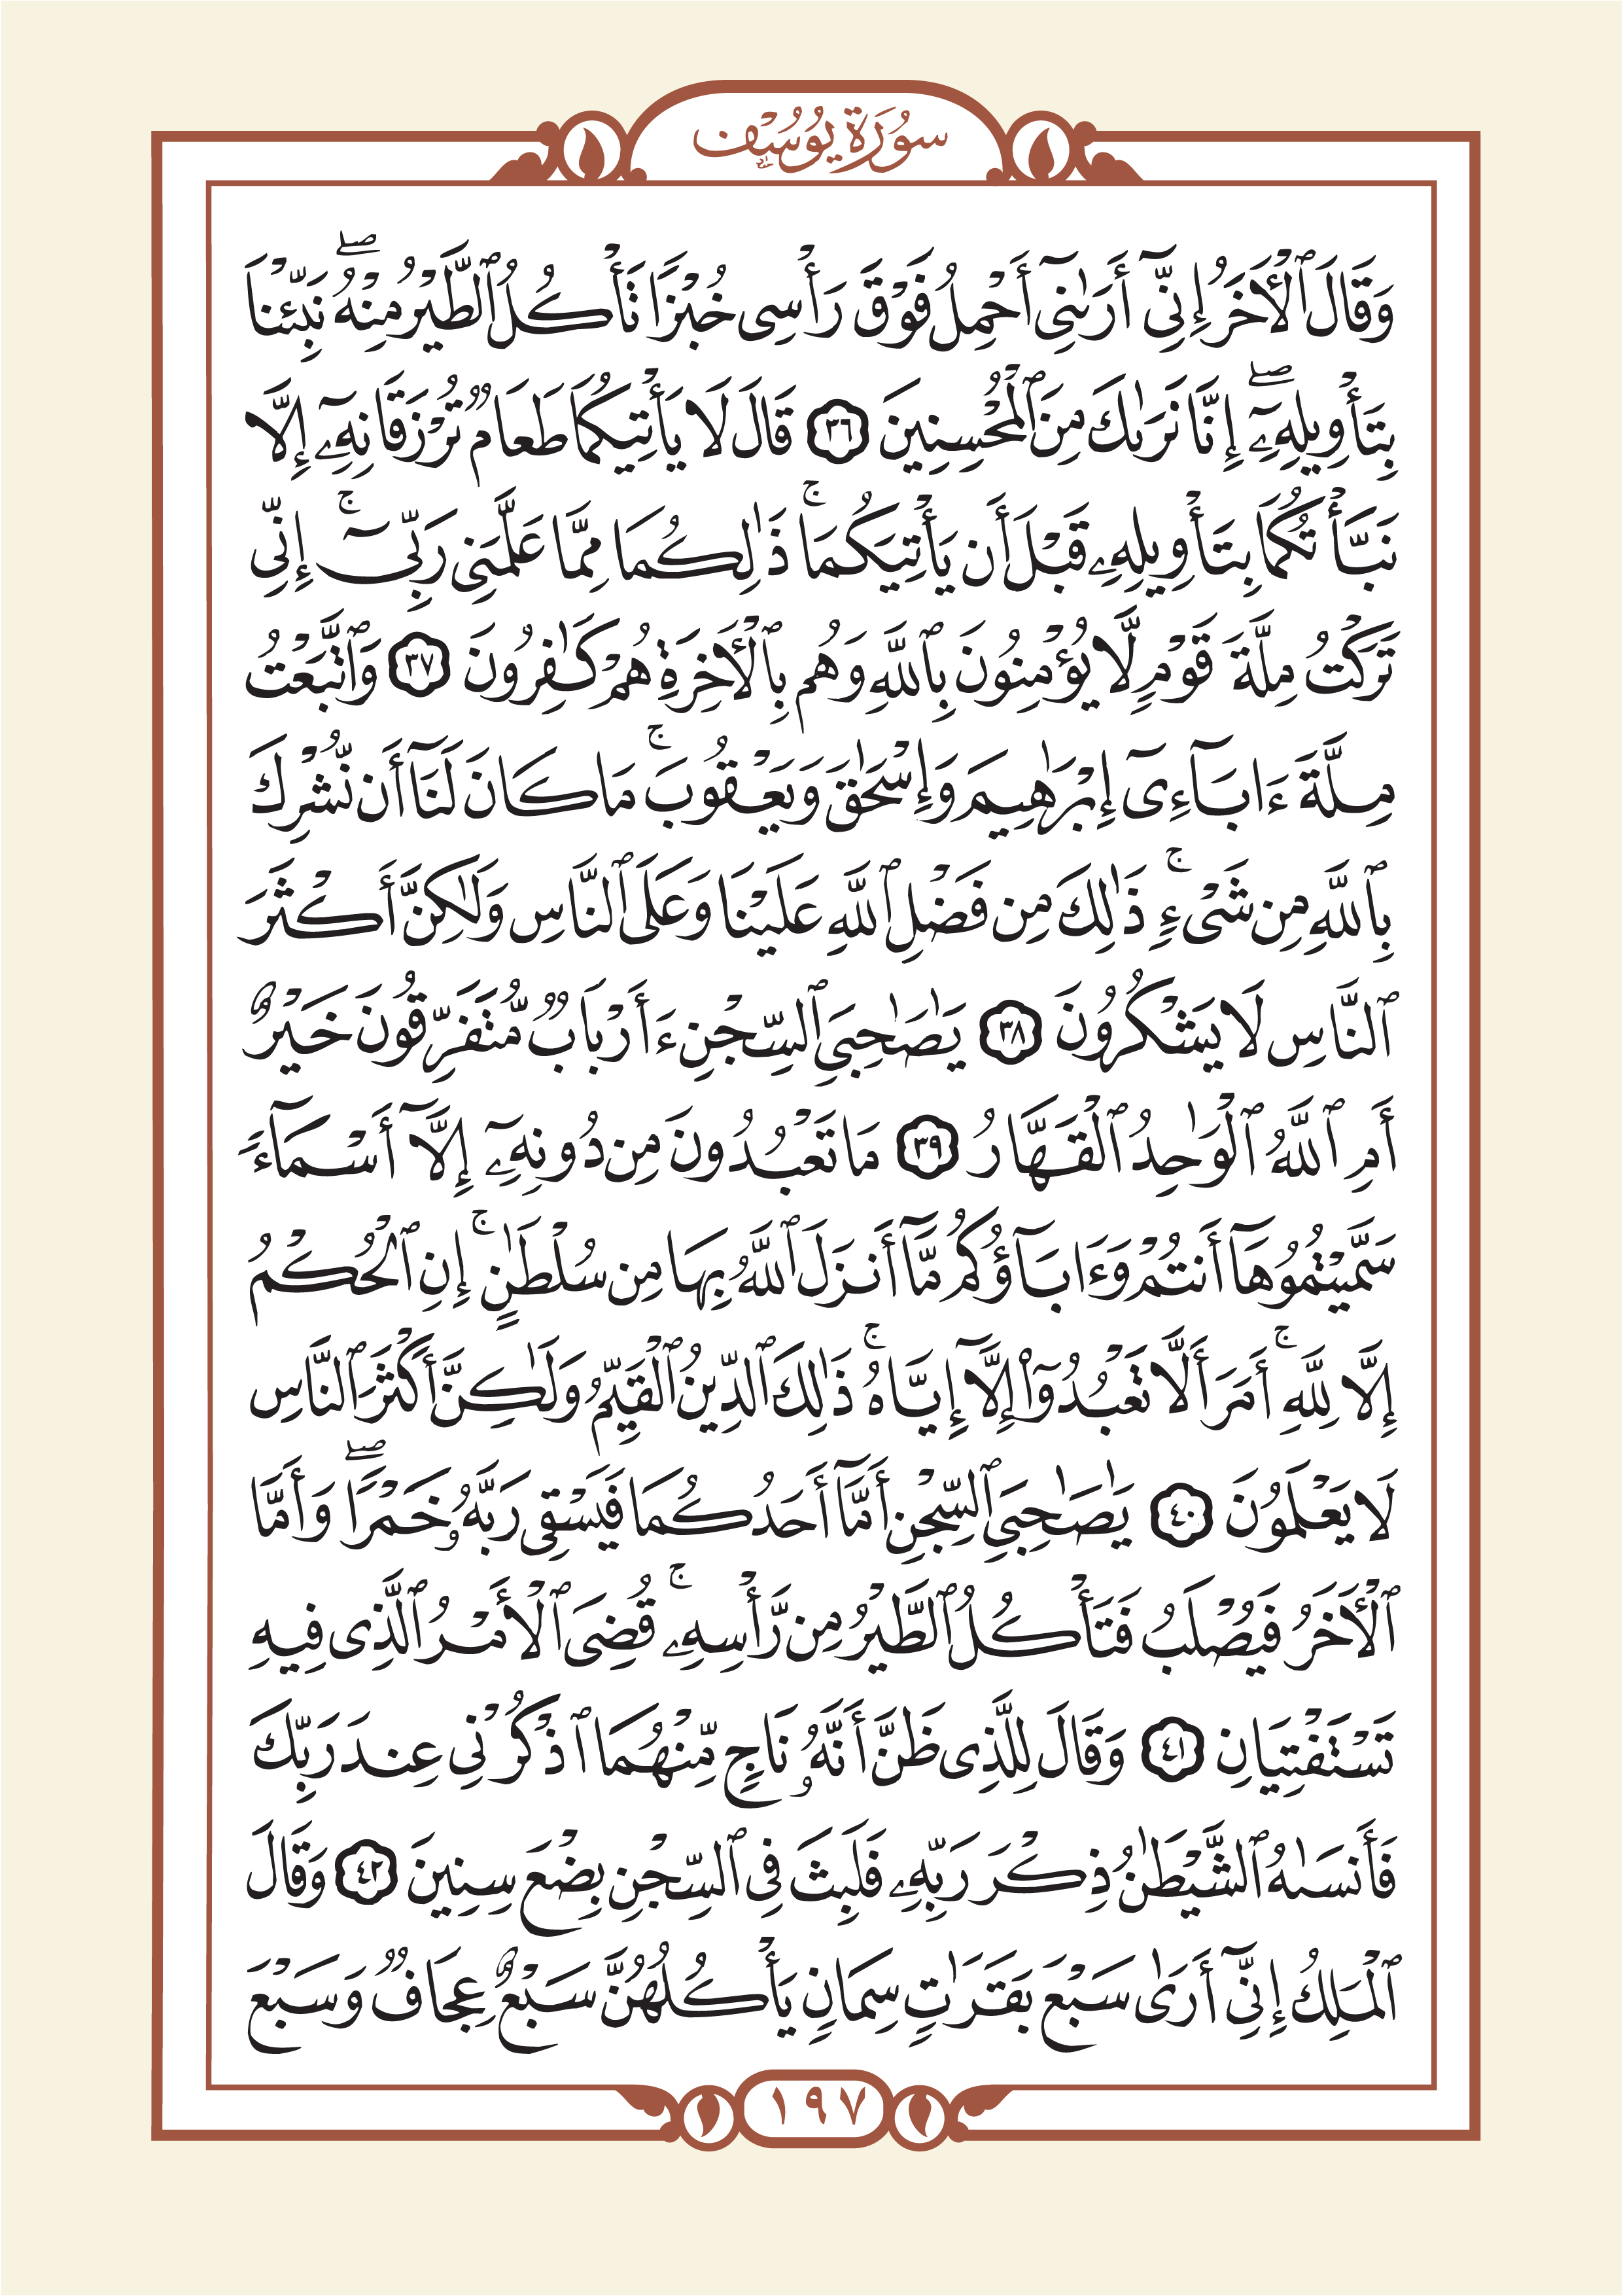 سُورَةُ يُوسُف
وَقَالَ ٱلْأَخَرُ إِنِّيٓ أَرَىٰنِي أَحْمِلُ فَوْقَ رَأْسِي خُبْزًا تَأْكُلُ ٱلطَّيْرُ مِنْهُ ۖ نَبِّئْنَا
بِتَأْوِيلِهِۦٓ ۖ إِنَّا نَرَىٰكَ مِنَ ٱلْمُحْسِنِينَ ٣٦ قَالَ لَا يَأْتِيكُمَا طَعَامٌ تُرْزَقَانِهِۦٓ إِلَّا
نَبَّأْتُكُمَا بِتَأْوِيلِهِۦ قَبْلَ أَن يَأْتِيَكُمَا ۚ ذَٰلِكُمَا مِمَّا عَلَّمَنِي رَبِّيٓ ۚ إِنِّي
تَرَكْتُ مِلَّةَ قَوْمٍ لَّا يُؤْمِنُونَ بِٱللَّهِ وَهُم بِٱلْأَخِرَةِ هُمْ كَٰفِرُونَ ٣٧ وَٱتَّبَعْتُ
مِلَّةَ ءَابَآءِيٓ إِبْرَٰهِيمَ وَإِسْحَٰقَ وَيَعْقُوبَ ۚ مَا كَانَ لَنَآ أَن نُّشْرِكَ
بِٱللَّهِ مِن شَيْءٍ ۚ ذَٰلِكَ مِن فَضْلِ ٱللَّهِ عَلَيْنَا وَعَلَى ٱلنَّاسِ وَلَٰكِنَّ أَكْثَرَ
ٱلنَّاسِ لَا يَشْكُرُونَ ٣٨ يَٰصَٰحِبَيِ ٱلسِّجْنِ ءَأَرْبَابٌ مُّتَفَرِّقُونَ خَيْرٌ
أَمِ ٱللَّهُ ٱلْوَٰحِدُ ٱلْقَهَّارُ ٣٩ مَا تَعْبُدُونَ مِن دُونِهِۦٓ إِلَّآ أَسْمَآءً
سَمَّيْتُمُوهَآ أَنتُمْ وَءَابَآؤُكُم مَّآ أَنزَلَ ٱللَّهُ بِهَا مِن سُلْطَٰنٍ ۚ إِنِ ٱلْحُكْمُ
إِلَّا لِلَّهِ ۚ أَمَرَ أَلَّا تَعْبُدُوٓا۟ إِلَّآ إِيَّاهُ ۚ ذَٰلِكَ ٱلدِّينُ ٱلْقَيِّمُ وَلَٰكِنَّ أَكْثَرَ ٱلنَّاسِ
لَا يَعْلَمُونَ ٤٠ يَٰصَٰحِبَيِ ٱلسِّجْنِ أَمَّآ أَحَدُكُمَا فَيَسْقِي رَبَّهُۥ خَمْرًا ۖ وَأَمَّا
ٱلْأَخَرُ فَيُصْلَبُ فَتَأْكُلُ ٱلطَّيْرُ مِن رَّأْسِهِۦ ۚ قُضِيَ ٱلْأَمْرُ ٱلَّذِي فِيهِ
تَسْتَفْتِيَانِ ٤١ وَقَالَ لِلَّذِي ظَنَّ أَنَّهُۥ نَاجٍ مِّنْهُمَا ٱذْكُرْنِي عِندَ رَبِّكَ
فَأَنسَىٰهُ ٱلشَّيْطَٰنُ ذِكْرَ رَبِّهِۦ فَلَبِثَ فِي ٱلسِّجْنِ بِضْعَ سِنِينَ ٤٢ وَقَالَ
ٱلْمَلِكُ إِنِّيٓ أَرَىٰ سَبْعَ بَقَرَٰتٍ سِمَانٍ يَأْكُلُهُنَّ سَبْعٌ عِجَافٌ وَسَبْعَ
١٩٧